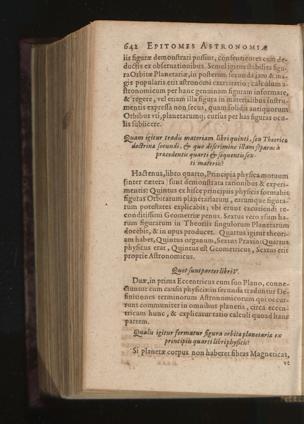 642 EPITOMES ASTRONOMIÆ
lis figuræ demonstrari possint, consentientes cum de-
ductis ex observationibus. Semel igitur stabilita figu-
ra Orbitæ Planetariæ, in posterum secunda jam & ma-
gis popularis erit astronomi exercitatio; calculum a-
stronomicum per hanc genuinam figuram informare,
& regere, vel etiam illa figura in materialibus instru-
mentis expressa non secus, quam solidis antiquorum
Orbibus uti, planetarumque cursus per has figuras ocu-
lis subijcere.
Quam igitur tradis materiam libri quinti, seu Theoricæ
doctrinæ secundi, & quo discrimine illam separas à
præcedentis quarti & sequentis sex-
ti materia?
Hactenus, libro quarto, Principia physica motuum
sunt demonstrata rationibus & experi-
mentis: Quintus ex hisce principijs physicis formabit
figuras Orbitarum planetariarum, earumque figura-
rum potestates explicabit; vbi eruet
conditissimis Geometriæ penus. Sextus vero usum ha-
rum figurarum in Theorijs singulorum Planetarum
docebit, & in usus producet. Quartus igitur theori-
am habet, Quintus organum, Sextus Praxin: Quartus
physicus erat, Quintus est Geometricus, Sextus erit
proprie Astronomicus.
Quot sunt partes libri V.
Duæ, in prima Eccentricus cum suo Plano, conne-
ctuntur cum causis physicis: in secunda traduntur De-
finitiones terminorum Astronomicorum qui occur-
runt communiter in omnibus planetis, circa eccen-
tricum hunc, & explicatur ratio calculi quoad hanc
partem.
Qualis igitur formatur figura orbitæ planetariæ ex
principijs quarti libri physicis?
Si planetæ corpus non haberet fibras Magneticas,